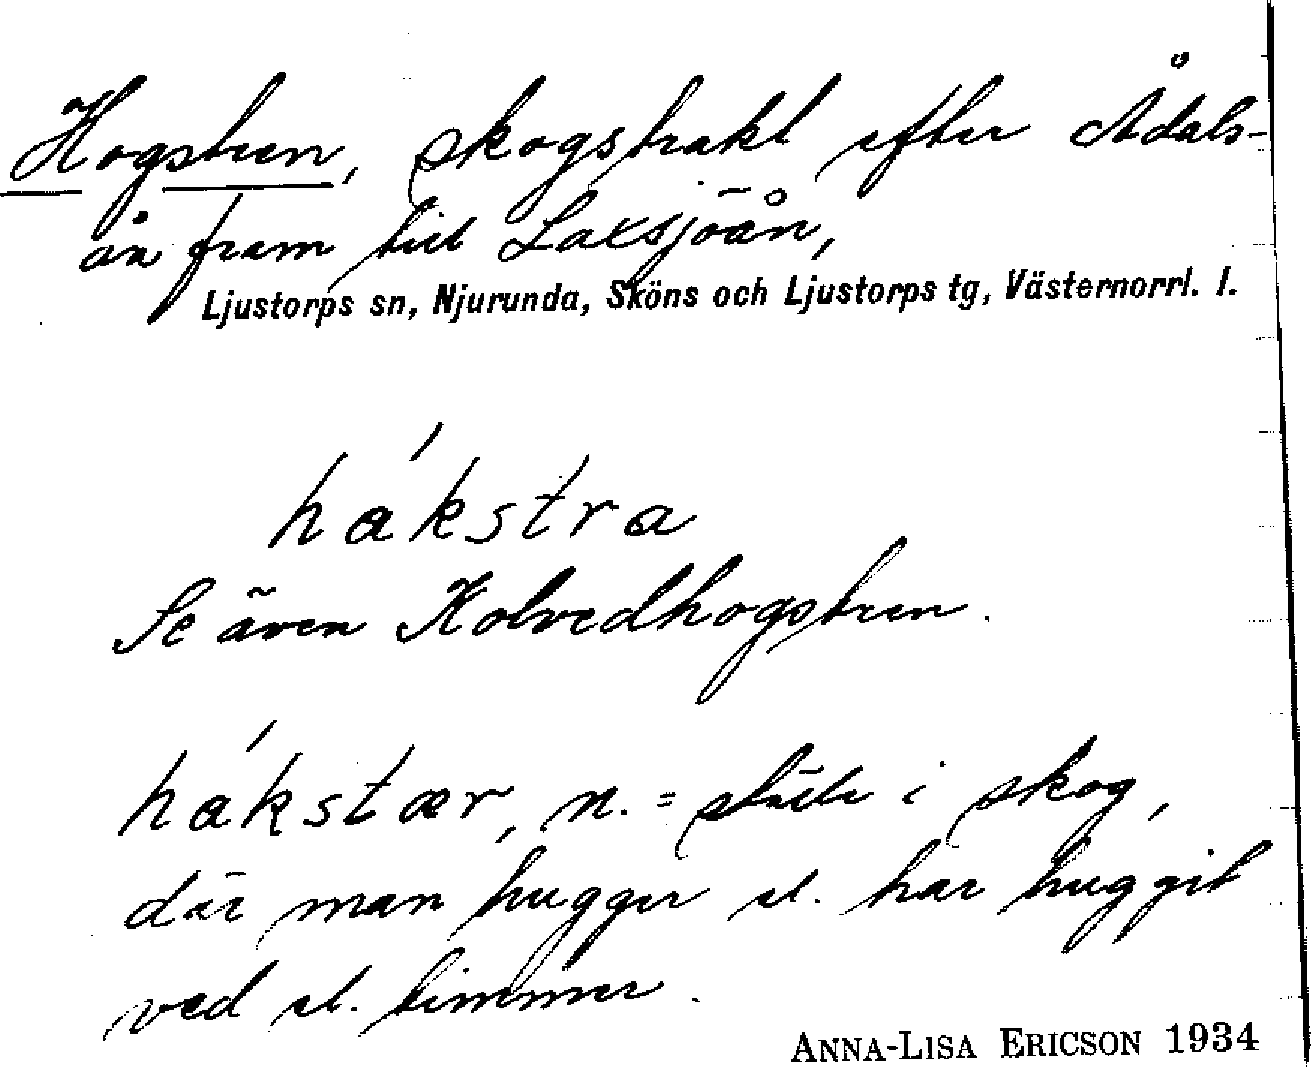 Hogstren, skogstrakt efter Ådals-
ån fram till Laxsjöån,
Ljustorps sn, Njurunda, Sköns och Ljustorps tg, Västernorrl. l.
hákstra
Se även Kolvedhogstren.
hákstær, n. = ställe i skog,
där man hugger el. har huggit
ved el. timmer.
ANNA-LISA ERICSON 1934